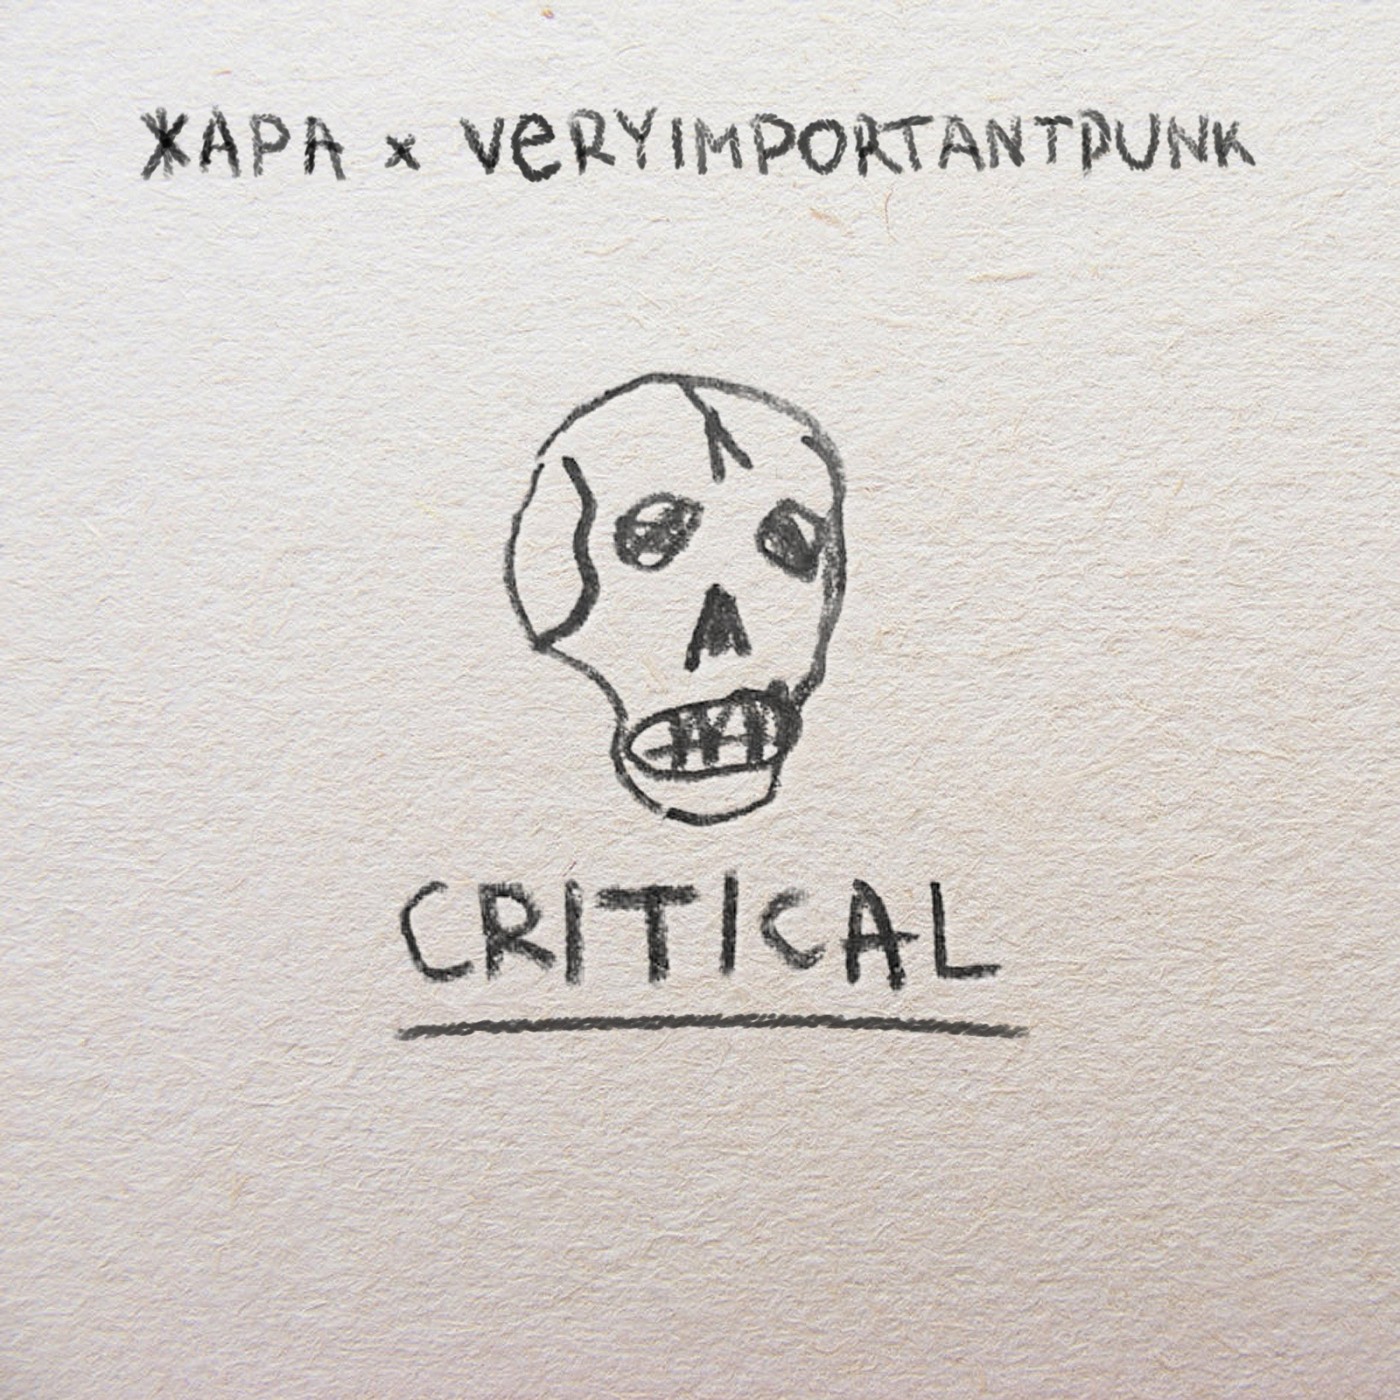 ЖАРА x VeRYIMPORTANTPUNK
CRITICAL